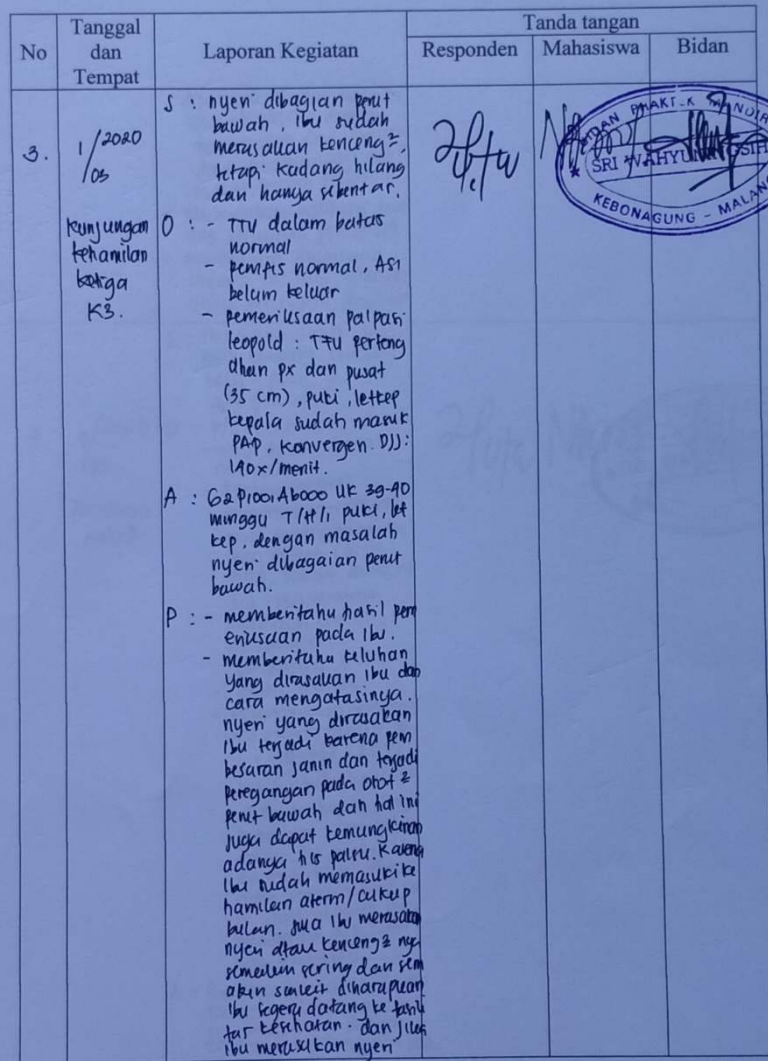 No
Tanggal
dan
Tempat
Laporan Kegiatan
Tanda tangan
Responden
Mahasiswa
Bidan
3.
1/2020
/03
kunjungan
kehamilan
ketiga
K3.
S : nyeri dibagian perut
bawah, ibu sudah
merasakan kenceng²,
tetapi kadang hilang
dan hanya sebentar.
O : - TTV dalam batas
normal
- pemfis normal, ASI
belum keluar
- pemeriksaan palpasi
leopold : TFU perteng
ahan px dan pusat
(35 cm), puki, letkep
kepala sudah masuk
PAP, konvergen. DJJ:
140x/menit.
A : G2P1001Ab000 UK 39-40
minggu T/H/I, puki, let
kep, dengan masalah
nyeri dibagaian perut
bawah.
P : - memberitahu hasil pem
eriksaan pada ibu.
- memberitahu keluhan
yang dirasakan ibu dan
cara mengatasinya.
nyeri yang dirasakan
ibu terjadi karena pem
besaran janin dan terjadi
peregangan pada otot²
perut bawah dan hal ini
juga dapat kemungkinan
adanya his palsu. Karena
ibu sudah memasuki ke
hamilan aterm/cukup
bulan. jika ibu merasakan
nyeri atau kenceng² nya
semakin sering dan sem
akin sakit diharapkan
ibu segera datang ke fasili
tas kesehatan. dan jika
ibu merasakan nyeri
BIDAN PRAKTEK MANDIRI
SRI WAHYUNINGSIH
KEBONAGUNG - MALANG